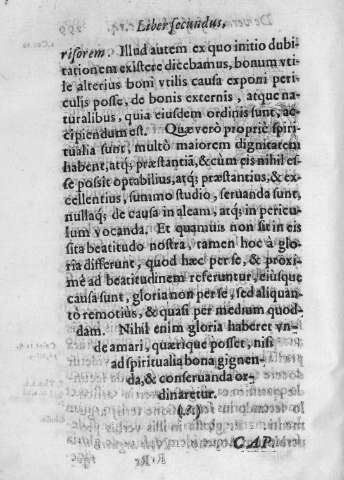 Liber secundus,
risorem. Illud autem ex quo initio dubi-
tationem existere dicebamus, bonum vti-
le alterius boni vtilis causa exponi peri-
culis posse, de bonis externis, atque na-
turalibus, quia eiusdem ordinis sunt, ac-
cipiendum est. Quæ verò propriè spiri-
tualia sunt, multò maiorem dignitatem
habent, atq; præstantiã, & cum eis nihil es-
se possit optabilius, atq; præstantius, & ex-
cellentius, summo studio, seruanda sunt,
nullaq; de causa in aleam, atq; in pericu-
lum vocanda. Et quamuis non sit in eis
sita beatitudo nostra, tamen hoc à glo-
ria differunt, quod hæc per se, & proxi-
mè ad beatitudinem referuntur, eiusque
causa sunt, gloria non per se, sed aliquan-
to remotius, & quasi per medium quod-
dam. Nihil enim gloria haberet vn-
de amari, quærique posset, nisi
ad spiritualia bona gignen-
da, & conseruanda or-
dinaretur.
(.?.)
CAP.